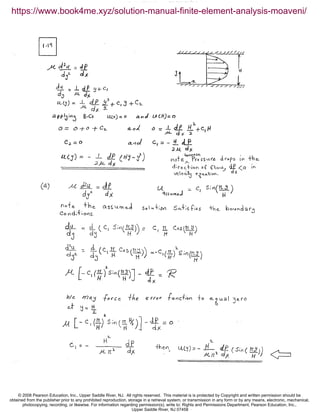 https://www.book4me.xyz/solution-manual-finite-element-analysis-moaveni/
1.19
μ d²u/dy² = dP/dx
du/dy = 1/μ dP/dx y + C₁
u(y) = 1/μ dP/dx y²/2 + C₁y + C₂
applying B.Cs u(0)=0 and u(H)=0
0 = 0 + 0 + C₂ and 0 = 1/μ dP/dx H²/2 + C₁H
C₂ = 0 and C₁ = - H/2μ dP/dx
u(y) = - 1/2μ dP/dx (Hy - y²)
note Pressure drops in the
direction of flow, dP/dx <0 in
velocity equation.
(a) μ d²u/dy² = dP/dx u assumed = C₁ Sin(πy/H)
note the assumed solution satisfies the boundary
Conditions.
du/dy = d/dy (C₁ Sin(πy/H)) = C₁ π/H Cos(πy/H)
d²u/dy² = d/dy (C₁ π/H Cos(πy/H)) = -C₁(π/H)² Sin(πy/H)
μ [-C₁(π/H)² Sin(πy/H)] - dP/dx = R
We may force the error function to equal zero
at y = H/2
μ [-C₁(π/H)² Sin(π/2)] - dP/dx = 0
C₁ = - H²/μπ² dP/dx then, u(y) = - H²/μπ² dP/dx (Sin(πy/H))
© 2008 Pearson Education, Inc., Upper Saddle River, NJ. All rights reserved. This material is is protected by Copyright and written permission should be
obtained from the publisher prior to any prohibited reproduction, storage in a retrieval system, or transmission in any form or by any means, electronic, mechanical,
photocopying, recording, or likewise. For information regarding permission(s), write to: Rights and Permissions Department, Pearson Education, Inc.,
Upper Saddle River, NJ 07458